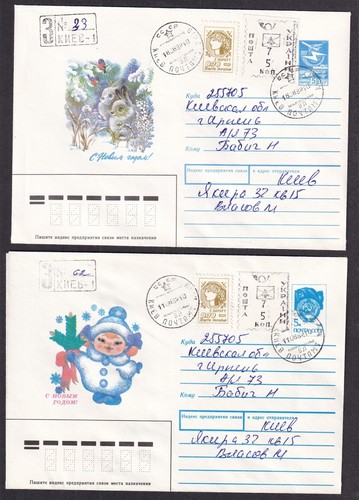 № 23
КИЕВ-1
СССР
КИЕВ ПОЧТАМТ
ПОШТА
7
5
КОП.
УКРАЇНИ
С Новым годом!
Куда 255705
Киевская обл
г Ирпень
А/Я 73
Кому Бабич Н
Индекс предприятия связи и адрес отправителя
Киев
Якира 32 кв 15
Власов М
Пишите индекс предприятия связи места назначения
№ 62
КИЕВ-1
СССР
КИЕВ ПОЧТАМТ
ПОШТА
7
5
КОП.
УКРАЇНИ
5
ПОЧТА СССР
С НОВЫМ
ГОДОМ!
Куда 255705
Киевская обл
г Ирпень
А/Я 73
Кому Бабич Н
Индекс предприятия связи и адрес отправителя
Киев
Якира 32 кв 15
Власов М
Пишите индекс предприятия связи места назначения